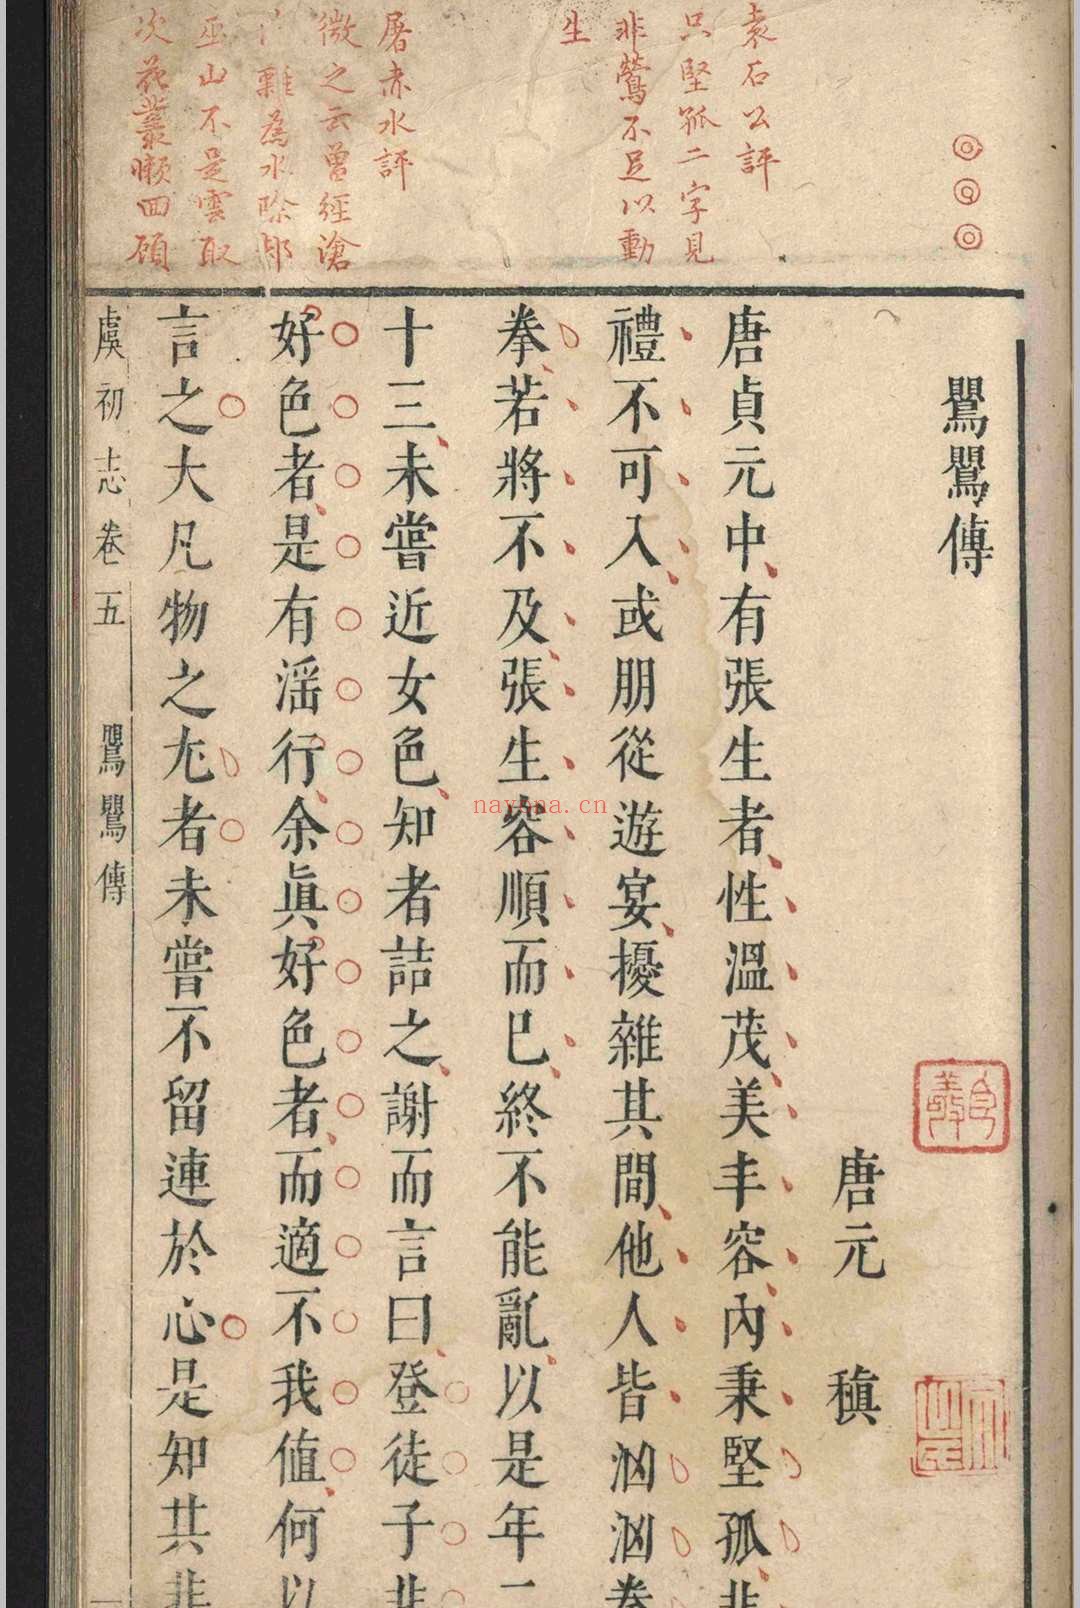 鸎鸎傳
唐元 稹
唐貞元中有張生者性溫茂美丰容內秉堅孤非
禮不可入或朋從遊宴擾雜其間他人皆汹汹拳
拳若將不及張生容順而已終不能亂以是年二
十三未嘗近女色知者詰之謝而言曰登徒子非
好色者是有滛行余眞好色者而適不我值何以
言之大凡物之尢者未嘗不留連於心是知其非
虞初志卷五 鸎鸎傳
袁石公評
只堅孤二字見
非鶯不足以動
生
屠赤水評
微之云曾經滄
難為水除却
巫山不是雲取
次花叢懶回顧
nayona.cn